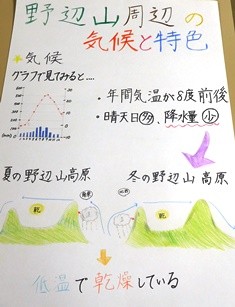 野辺山周辺の
気候と特色
気候
グラフで見てみると....
・年間気温が8度前後
・晴天日多、降水量少
夏の野辺山高原
冬の野辺山高原
乾
乾
低温で乾燥している